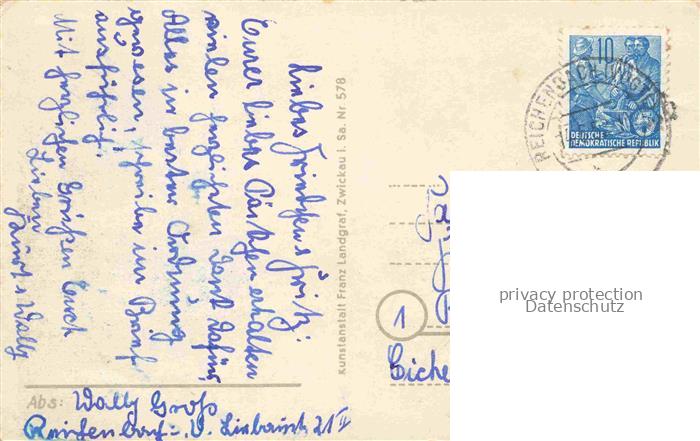 Liebes Friedchen u. Fritz!
Eurer liebes Päckchen erhalten
vielen herzlichsten Dank dafür,
Alles in bester Ordnung
gewesen, schreibe im Brief
ausführlich.
Mit herzlichen Grüßen Euch
Lieben
Wally
Kunstanstalt Franz Landgraf, Zwickau i. Sa. Nr 578
Abs: Wally Groß
Reichenbach i. V.
21 II
10
DEUTSCHE
DEMOKRATISCHE REPUBLIK
REICHENBACH (VOGTL)
1
Eiche
privacy protection
Datenschutz